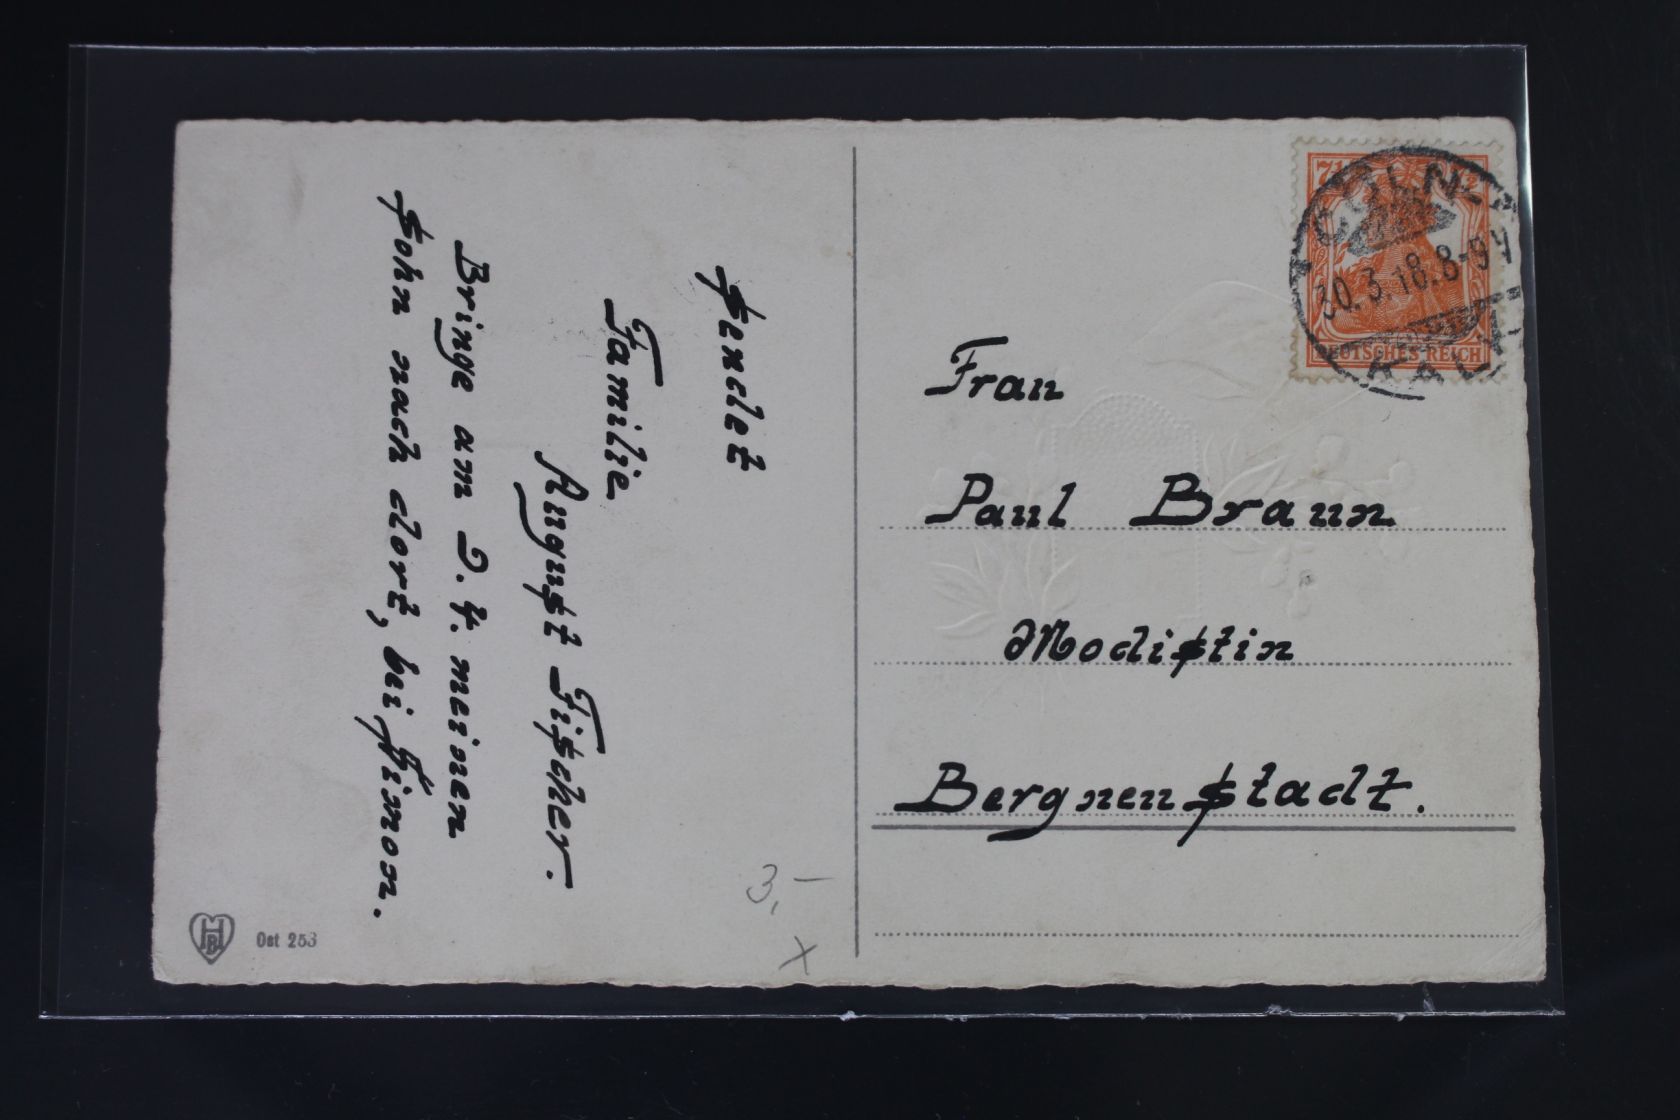 Sendet
Familie
August Fischer.
Bringe am 2.4. meinen
Sohn nach dort, bei Simon.
HB
Ost 253
3,–
x
7½
CÖLN
30.3.18.8-9V
DEUTSCHES REICH
KALK
Frau
Paul Braun
Modistin
Bergneustadt.